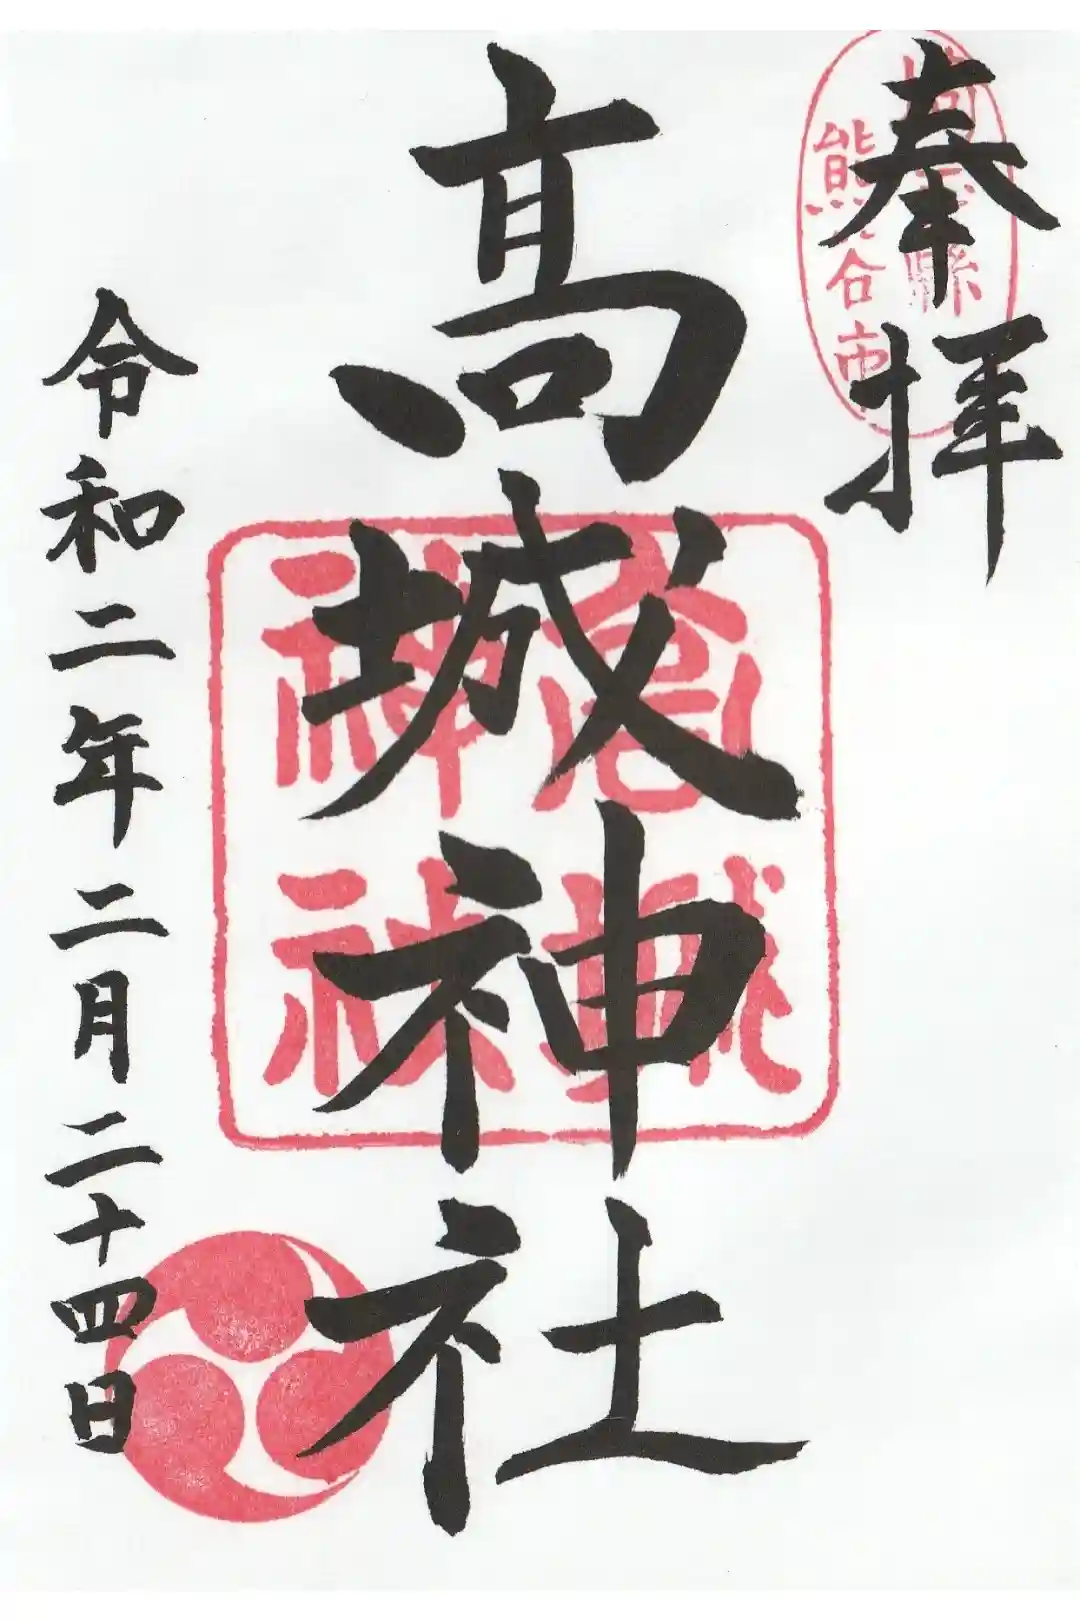 奉拝
埼玉縣
熊谷市
髙城神社
髙城
神社
令和二年二月二十四日